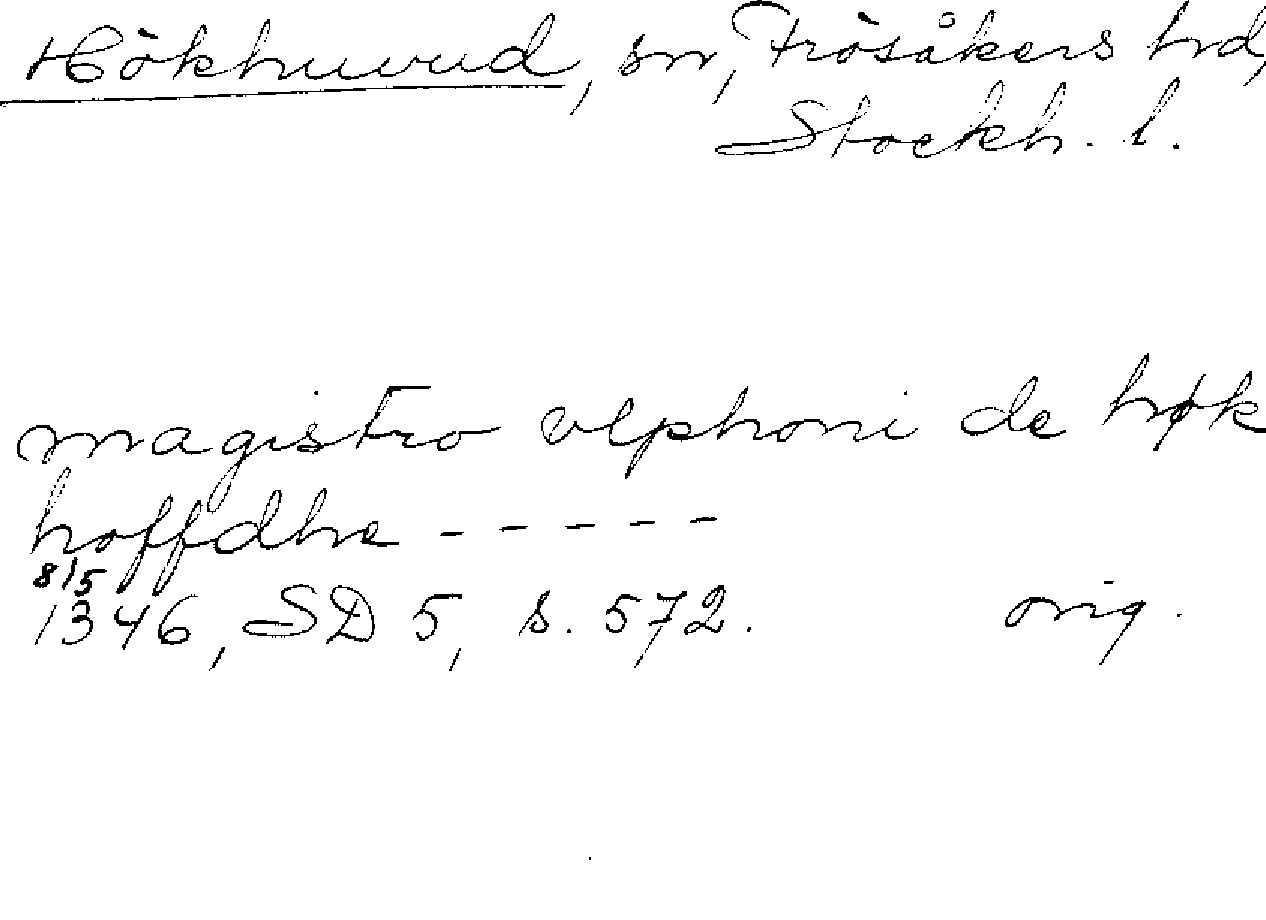 Hökhuvud, sn, Frösåkers hd,
Stockh. l.
magistro vlphoni de høk
hoffdhe - - - - -
8/5
1346, SD 5, s. 572. orig.